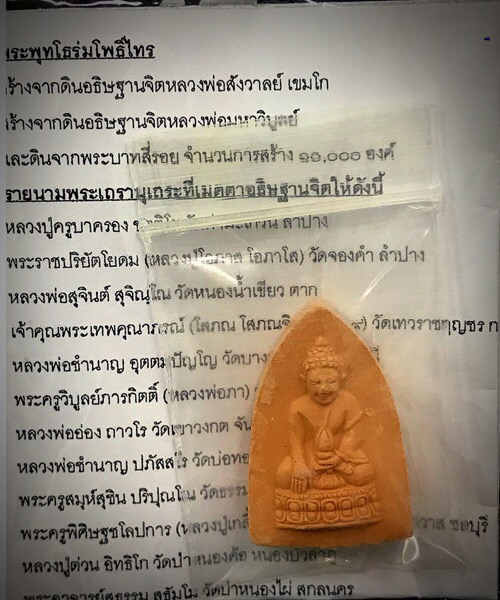 พระพุทโธร่มโพธิ์ไทร
สร้างจากดินอธิษฐานจิตหลวงพ่อสังวาลย์ เขมโก
สร้างจากดินอธิษฐานจิตหลวงพ่อมหาวิบูลย์
และดินจากพระบาทสี่รอย จำนวนการสร้าง ๑๐,๐๐๐ องค์
รายนามพระเถรานุเถระที่เมตตาอธิษฐานจิตให้ดังนี้
หลวงปู่ครูบาครอง ลำปาง
พระราชปริยัตโยดม (หลวงปู่โอภาส โอภาโส) วัดจองคำ ลำปาง
หลวงพ่อสุจินต์ สุจิณฺโณ วัดหนองน้ำเขียว ตาก
เจ้าคุณพระเทพคุณาภรณ์ (โสภณ วัดเทวราชกุญชร ก
หลวงพ่อชำนาญ อุตตมปัญโญ วัดบาง
พระครูวิบูลย์ภารกิตติ์ (หลวงพ่อภา)
หลวงพ่ออ่อง ถาวโร วัดเขาวงกต จัน
หลวงพ่อชำนาญ ปภัสสโร วัดบ่อทอ
พระครูสมุห์สุชิน ปริปุณโณ วัดธรรม
พระครูพิศิษฐชโลปการ (หลวงปู่เกลี้ วาส ชลบุรี
หลวงปู่ต่วน อิทธิโก วัดป่าหนองค้อ หนองบัวลำภู
พระอาจารย์สุธรรม สุธัมโม วัดป่าหนองไผ่ สกลนคร